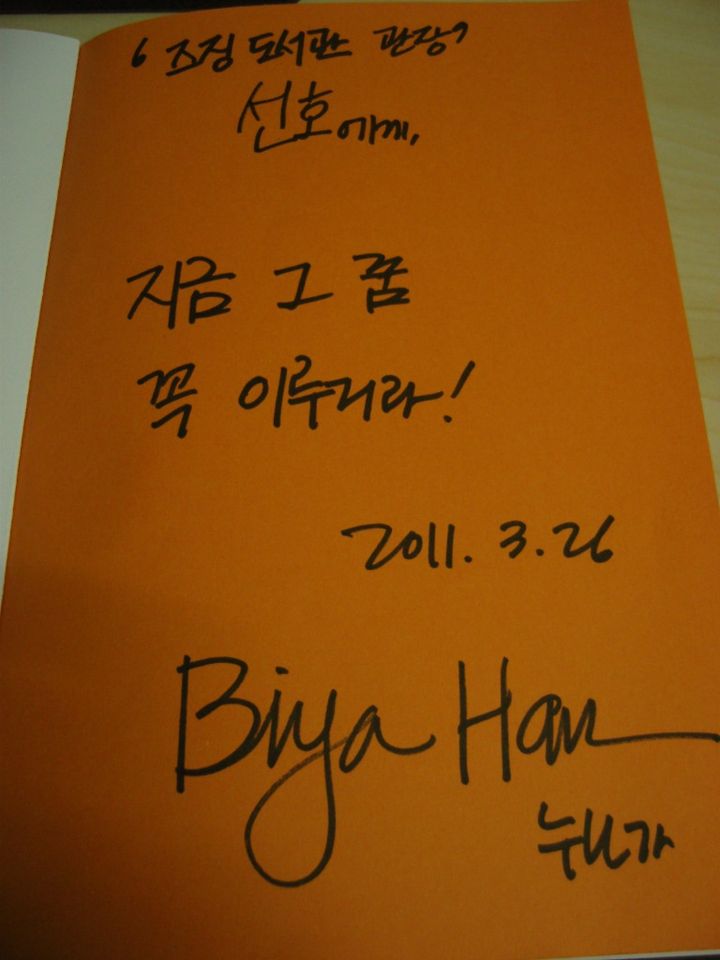 ‘조징 도서관 관장’
선호에게,
지금 그 꿈
꼭 이루거라!
2011. 3. 26
Biya Han
누나가